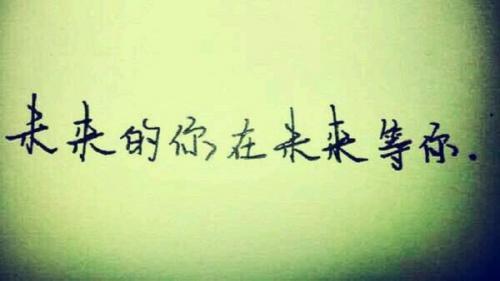 未来的你,在未来等你.